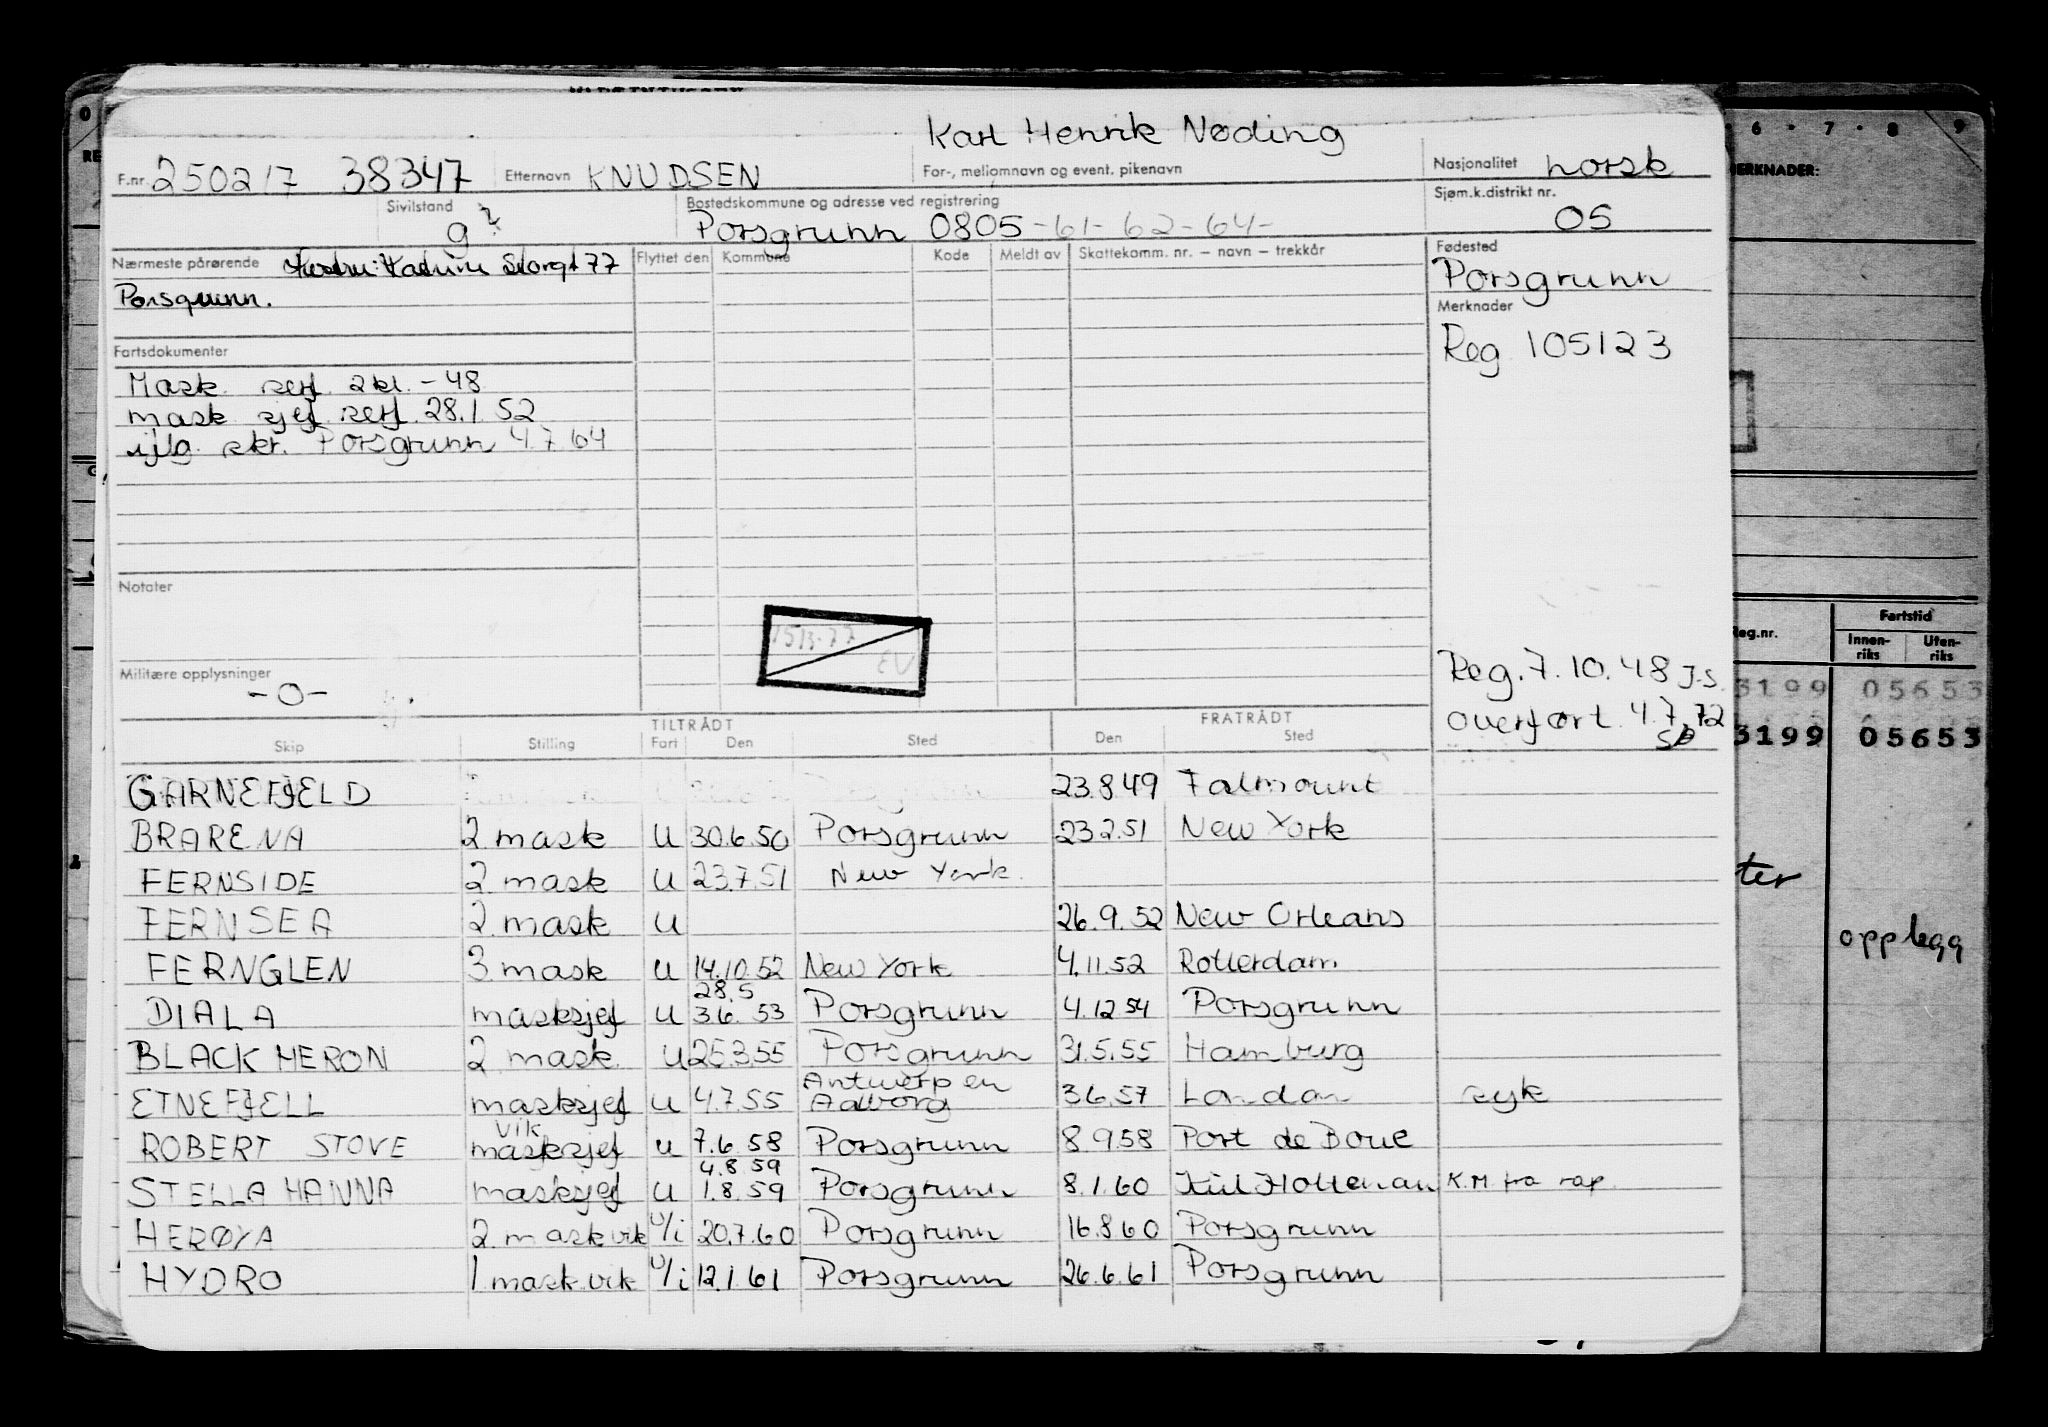 Karl Henrik Nøding
F.nr. 250217 38347 Etternavn KNUDSEN For-, mellomnavn og event. pikenavn Nasjonalitet norsk
Sivilstand g? Bostedskommune og adresse ved registrering Porsgrunn 0805-61-62-64- Sjøm.k.distrikt nr. 05
Nærmeste pårørende Storgt 77 Flyttet den Kommune Kode Meldt av Skattekomm. nr. – navn – trekkår Fødested
Porsgrunn. Porsgrunn
Merknader
Reg 105123
Fartsdokumenter
Mask sert. 2kl. -48
mask sjef sert. 28.1.52
sjlg. skr. Porsgrunn 4.7.64
Notater
1513-77
EV
Militære opplysninger
-0-
Reg. 7.10.48 J.S.
overført 4.7.72
TILTRÅDT FRATRÅDT
Skip Stilling Fart Den Sted Den Sted
GARNEFJELD 23.8.49 Falmount
BRARENA 2 mask U 30.6.50 Porsgrunn 23.2.51 New York
FERNSIDE 2. mask U 23.7.51 New York.
FERNSEA 2 mask U 26.9.52 New Orleans
FERNGLEN 3. mask U 14.10.52 New York 4.11.52 Rotterdam
28.5
DIALA masksjef U 3.6.53 Porsgrunn 4.12.54 Porsgrunn
BLACK HERON 2 mask. U 25.3.55 Porsgrunn 31.5.55 Hamburg
Antwerpen
ETNEFJELL masksjef U 4.7.55 Aalborg 3.6.57 London syk
vik
ROBERT STOVE masksjef U 7.6.58 Porsgrunn 8.9.58 Port de Bouc
4.8.59
STELLA HANNA masksjef U 1.8.59 Porsgrunn 8.1.60 Kiel Holtenau K.M fra rap.
HERØYA 2. mask vik U/i 20.7.60 Porsgrunn 16.8.60 Porsgrunn
HYDRO 1 mask.vik U/i 12.1.61 Porsgrunn 26.6.61 Porsgrunn
6 · 7 · 8 · 9
MERKNADER:
Reg.nr. Fartstid
Innen-riks Uten-riks
3199 05653
3199 05653
ter
opplegg